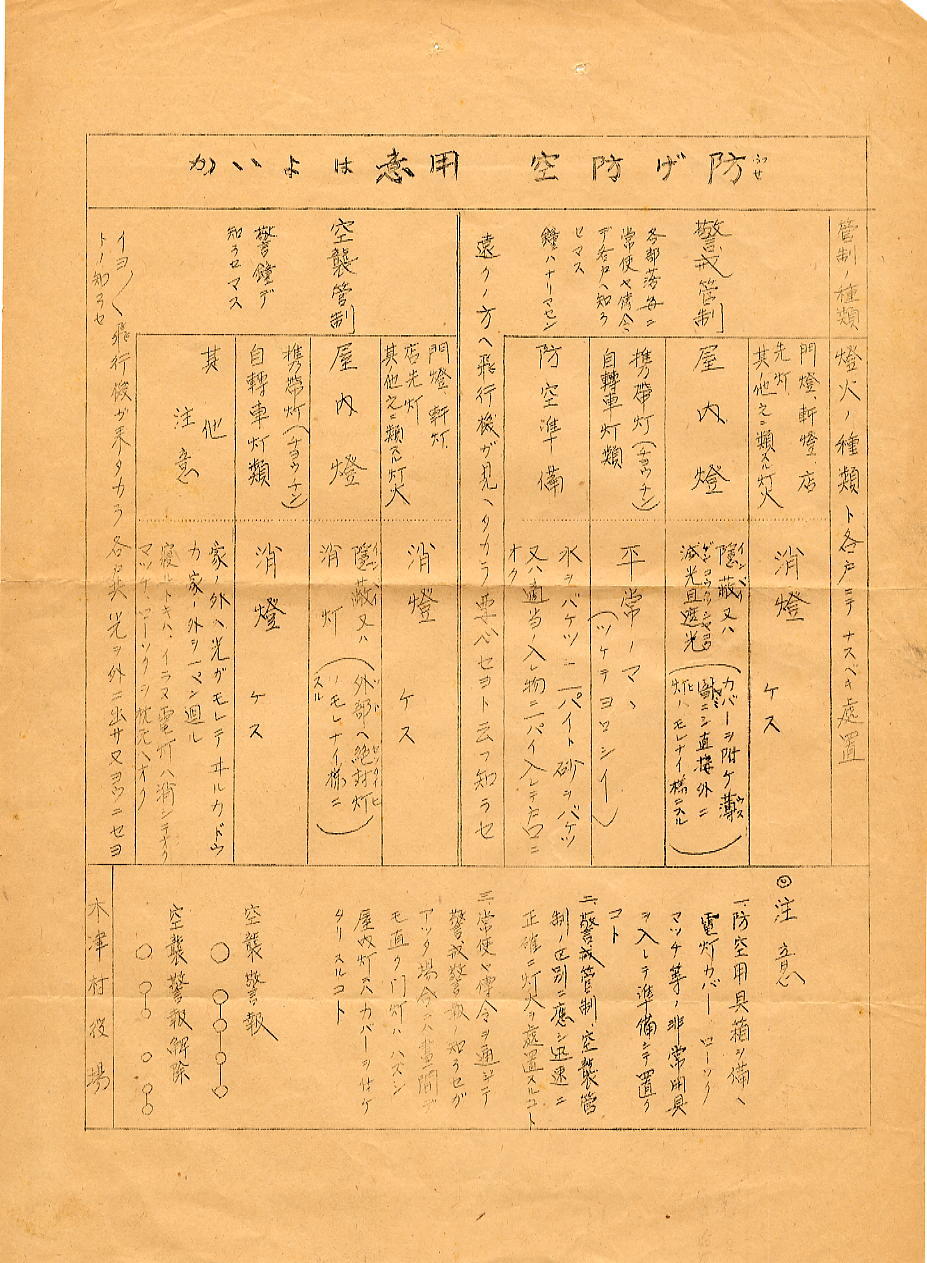 防げ防空 用意はよいか
ふせ
管制ノ種類
燈火ノ種類ト各戸ニテナスベキ處置
警戒管制
各部落毎ニ
常使や傳令
デ各戸ヘ知ラ
セマス
鐘ハナリマセン
門燈、軒燈、店
先灯
其ノ他之ニ類スル灯火
消燈
ケス
屋内燈
隠蔽又ハ
減光且遮光
カバーヲ附ケ薄
直接外ニ
灯ハモレナイ様ニスル
携帯灯(チョウチン)
自轉車灯類
平常ノマヽ
(ツケテヨロシイ)
防空準備
水ヲバケツニ一パイト砂ヲバケツ
又ハ適当ノ入レ物ニ一パイ入レテ戸口ニ
オク
遠クノ方ヘ飛行機ガ見ヘタカラ要心セヨト云フ知ラセ
空襲管制
警鐘デ
知ラセマス
門燈、軒灯、
店先灯
其ノ他之ニ類スル灯火
消燈
ケス
屋内燈
隠蔽又ハ
消灯
外部ヘ絶対灯
ノモレナイ様ニ
スル
携帯灯(チョウチン)
自轉車灯類
消燈
ケス
其他
注意
家ノ外ヘ光ガモレテヰルカドウ
カ家ノ外ヲ一マン廻ル
寝ルトキハ、イラヌ電灯ハ消シテオク
マッチ、ローソクヲ枕元ヘオク
イヨ〱飛行機ガ来タカラ各戸共光ヲ外ニ出サヌヨウニセヨ
トノ知ラセ
◎注意
一、防空用具箱ヲ備ヘ
電灯カバー、ローソク
マッチ等ノ非常用具
ヲ入レテ準備シテ置ク
コト
二、警戒管制、空襲管
制ノ区別ニ應シ迅速ニ
正確ニ灯火ヲ處置スルコト
三、常使や傳令ヲ通ジテ
警戒警報ノ知ラセガ
アッタ場合ニハ晝間デ
モ直ク門灯ハハズシ
屋内灯ハカバーヲ付ケ
タリスルコト
空襲警報
○ ○-○-○-○
空襲警報解除
○ ○-○ ○ ○-○
木津村役場